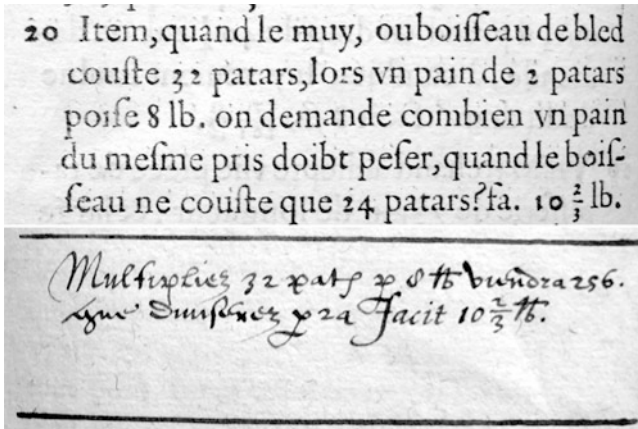 20 Item, quand le muy, ou boiſſeau de bled
couſte 32 patars, lors vn pain de 2 patars
poiſe 8 lb. on demande combien vn pain
du meſme pris doibt peſer, quand le boiſ-
ſeau ne couſte que 24 patars? fa. 10 2/3 lb.
Multipliez 32 pats p 8 lb viendra 256.
que diuiſerez p 24 Facit 10 2/3 lb.